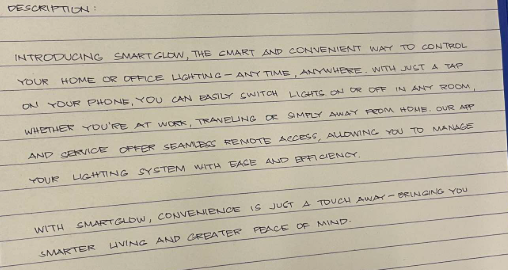 DESCRIPTION:
INTRODUCING SMARTGLOW, THE SMART AND CONVENIENT WAY TO CONTROL
YOUR HOME OR OFFICE LIGHTING - ANYTIME, ANYWHERE. WITH JUST A TAP
ON YOUR PHONE, YOU CAN EASILY SWITCH LIGHTS ON OR OFF IN ANY ROOM,
WHETHER YOU'RE AT WORK, TRAVELING OR SIMPLY AWAY FROM HOME. OUR APP
AND SERVICE OFFER SEAMLESS REMOTE ACCESS, ALLOWING YOU TO MANAGE
YOUR LIGHTING SYSTEM WITH EASE AND EFFICIENCY.
WITH SMARTGLOW, CONVENIENCE IS JUST A TOUCH AWAY - BRINGING YOU
SMARTER LIVING AND GREATER PEACE OF MIND.